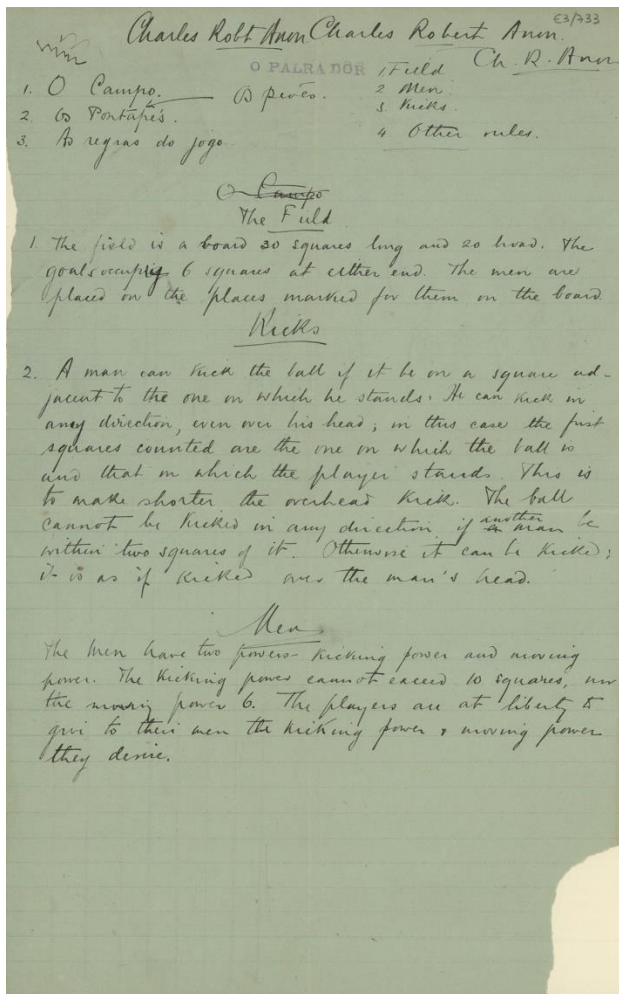 E3/733
Charles Robt Anon Charles Robert Anon.
Ch. R. Anon
O PALRADOR
1. O Campo.
Os piões.
2. Os Pontapés.
3. As regras do jogo.
1 Field
2 Men
3 Kicks.
4 Other rules.
O Campo
The Field
1. The field is a board 30 squares long and 20 broad. The
goals occupy 6 squares at either end. The men are
placed on the places marked for them on the board.
Kicks
2. A man can kick the ball if it be on a square ad-
jacent to the one on which he stands. He can kick in
any direction, even over his head; in this case the first
squares counted are the one on which the ball is
and that on which the player stands. This is
to make shorter the overhead kick. The ball
cannot be kicked in any direction, if another man be
within two squares of it. Otherwise it can be kicked;
it is as if kicked over the man's head.
Men
The Men have two powers - kicking power and moving
power. The kicking power cannot exceed 10 squares, nor
the moving power 6. The players are at liberty to
give to their men the kicking power & moving power
they desire.